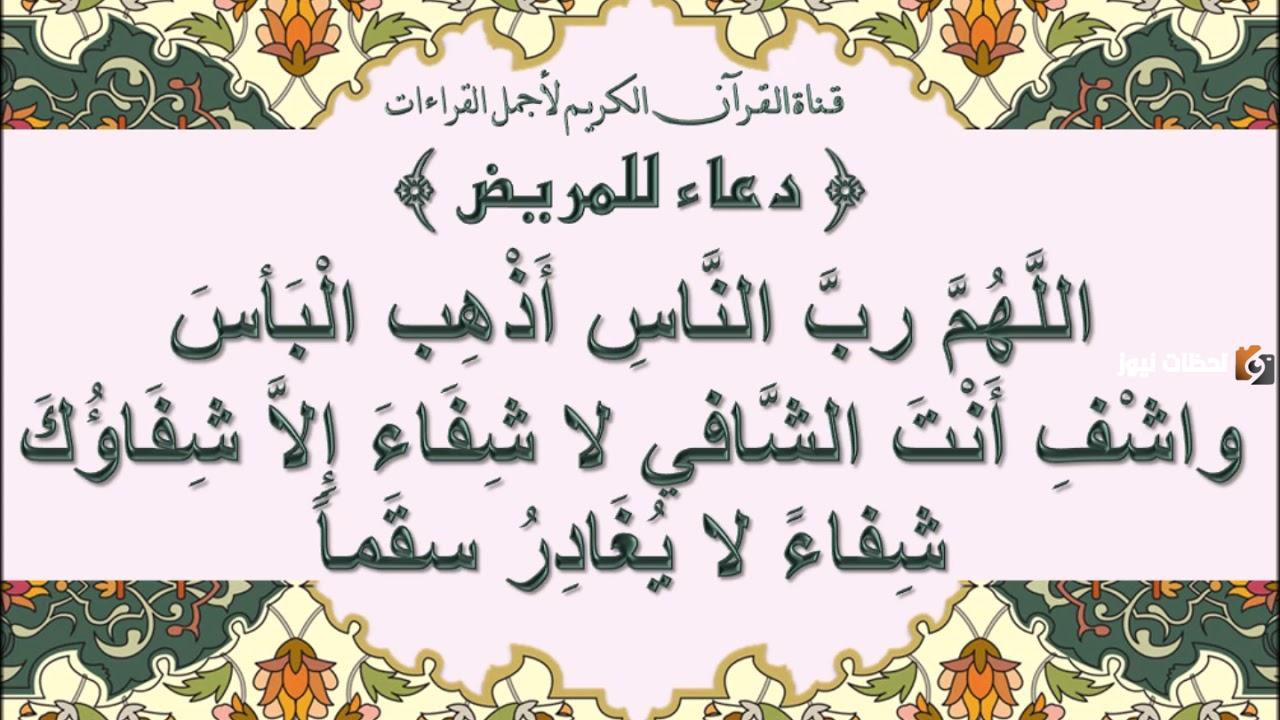 قناة القرآن الكريم لأجمل القراءات
﴿ دعاء للمريض ﴾
اللَّهُمَّ ربَّ النَّاسِ أَذْهِب الْبَأسَ
لحظات نيوز
واشْفِ أَنْتَ الشَّافي لا شِفَاءَ إِلاَّ شِفَاؤُكَ
شِفاءً لا يُغَادِرُ سقَماً